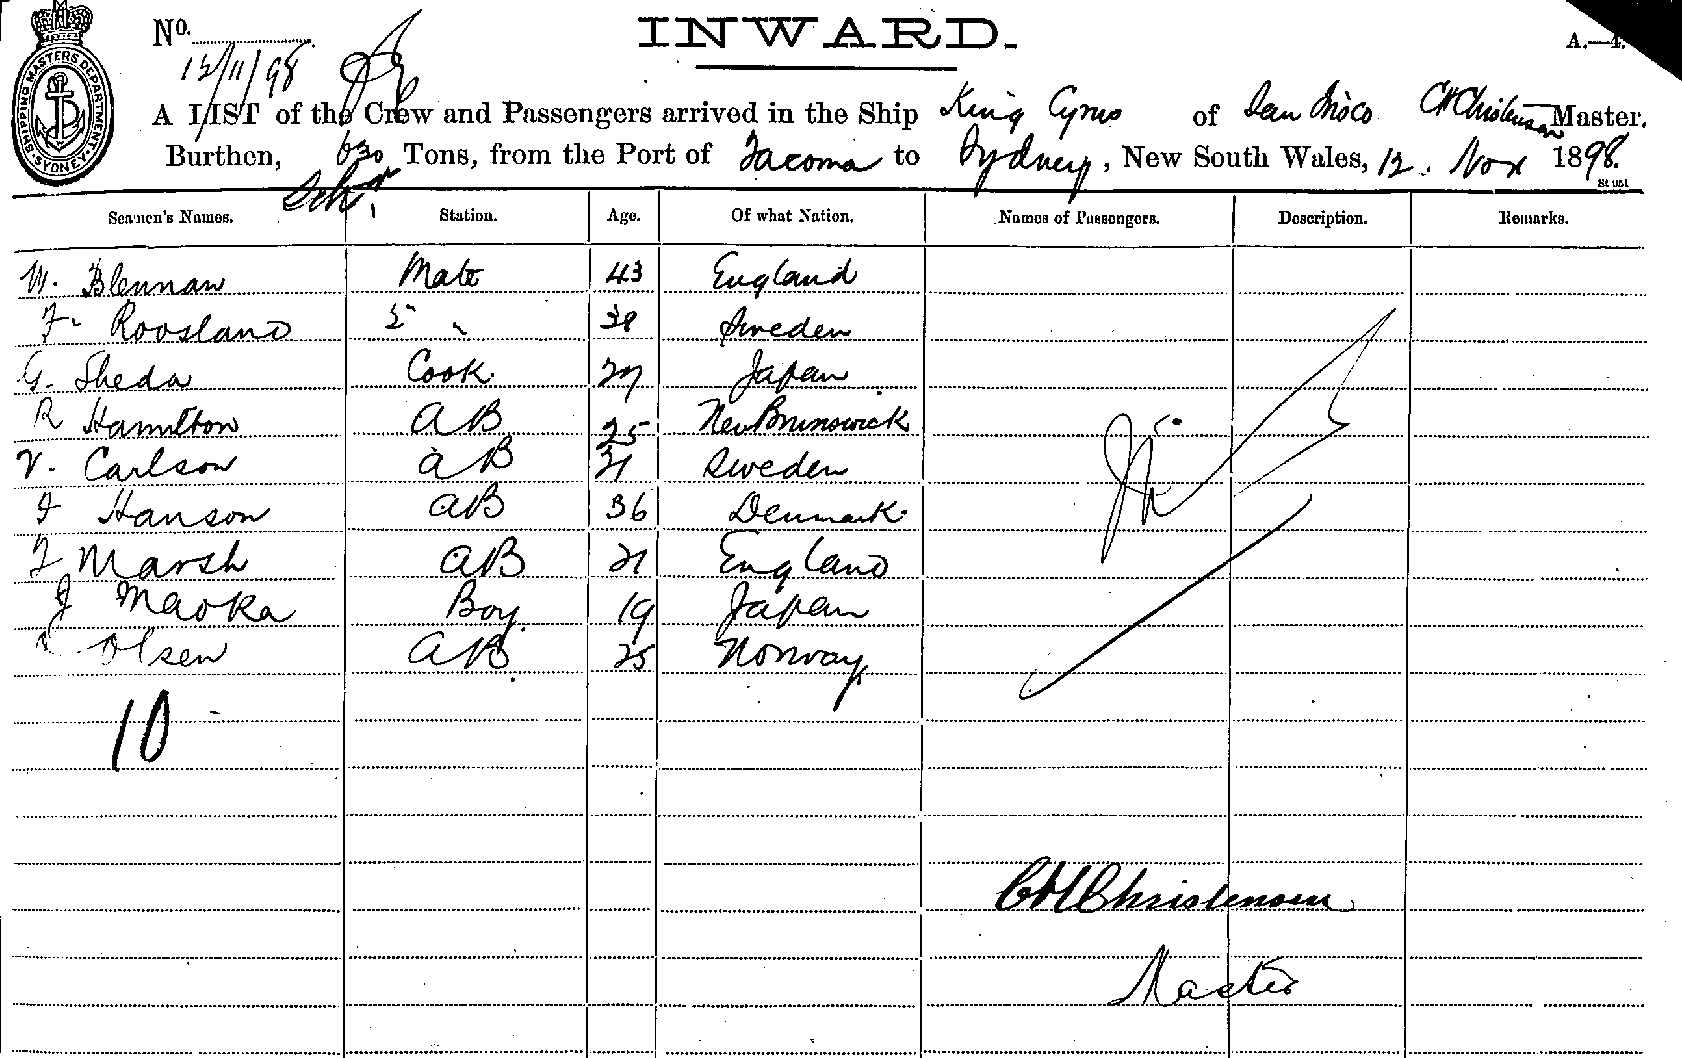 No.
INWARD.
A.—4.
12/11/98
A LIST of the Crew and Passengers arrived in the Ship King Cyrus of San Frisco CH Christensen Master.
Burthen, 630 Tons, from the Port of Tacoma to Sydney, New South Wales, 12. Nov 1898.
Schr
Seamen's Names. Station. Age. Of what Nation. Names of Passengers. Description. Remarks.
W. Blennan Mate 43 England
F. Roosland 2 " 38 Sweden
G. Sheda Cook 27 Japan
R Hamilton AB 25 New Brunswick
V. Carlson AB 21 Sweden
Hanson AB 36 Denmark
Marsh AB 21 England
J Maoka Boy 19 Japan
Olsen AB 25 Norway
10
CH Christensen
Master
SHIPPING MASTERS DEPARTMENT. SYDNEY.